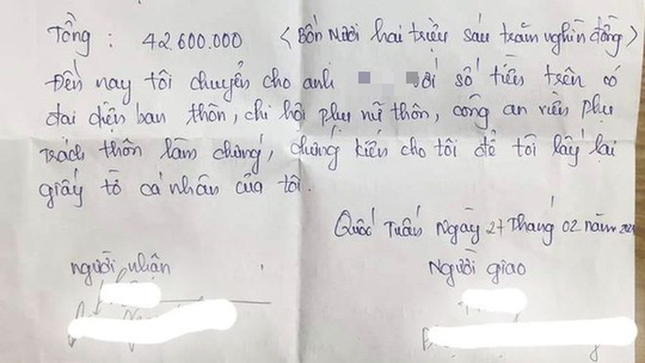 Tổng : 42.600.000 < Bốn Mươi hai triệu sáu trăm nghìn đồng>
Đến nay tôi chuyển cho anh với số tiền trên có
đại diện ban thôn, chi hội phụ nữ thôn, công an viên phụ
trách thôn làm chứng, chứng kiến cho tôi để tôi lấy lại
giấy tờ cá nhân của tôi.
Quốc Tuấn Ngày 27 Tháng 02 năm
người nhận
Người giao